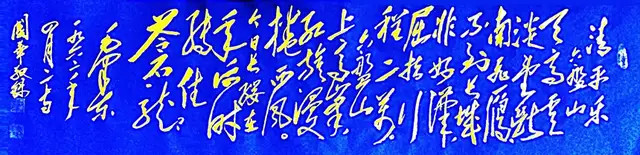 清平乐
六盘山
天高云
淡望断
南飞雁
不到长城
非好汉
屈指行
程二万
六盘山
上高峯
红旗漫
捲西风
今日长缨在
手何时
缚住
苍龙
毛泽东
一九六一年